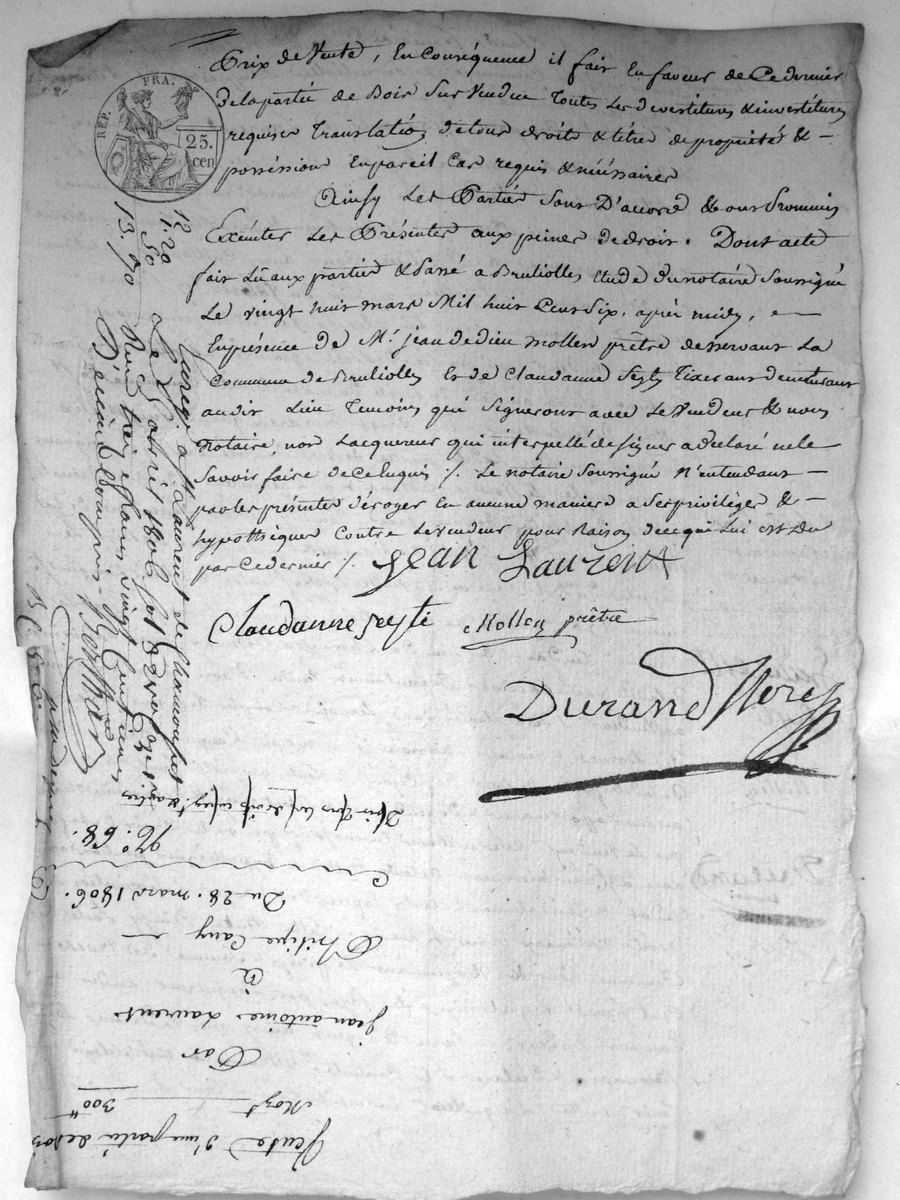 REP. FRA.
25. cen
Prix de Vente, En Conséquence il fait En faveur de Ce dernier
De la partie de Bois Sus Vendue Toutes Les devestitures & investitures
requises Translation de tour droits & titre de propriété & -
possession En pareil Cas requis & néssaires
Ainsy Les Partie Sont D'accord & ont Prommis
Exécuter Les Présentes aux peines de droit. Dont acte
fait Lû aux partie & Passé a Brulioles Etude Du notaire Soussigné
Le vingt huit mars Mil huit Cent Six, après midy, e -
En présence de Mr. jean de dieu mollen prêtre desservant La
Commune de Brulioles Et de Claudanne Seyti Tixerant demeurant
audit Lieu Temoins qui Signeront avec Le Vendeur & nous
Notaire, non Lacquereur qui interpellé de Signer a declaré ne le
Savoir faire de Ce Enquis /. Le notaire Soussigné N'entendant
par les présentes déroger En aucune maniere a Ses privilèges & -
hypothèques Contre Le vendeur pour Raison de ce qui Lui est Du
par Ce dernier /.
jean Laurent
Claudanne seyti
Mollen prêtre
Durand Nore
12
1. 20
50
13. 70
Enregé a St Laurent de Chamousset
Le avril 1806, fol
Reçu treize francs vingt Centimes
Décime Compris
No. 68.
Du 28. mars 1806.
Philipe Cary
à
jean antoine Laurent
Par
300
Vente d'une partie de bois